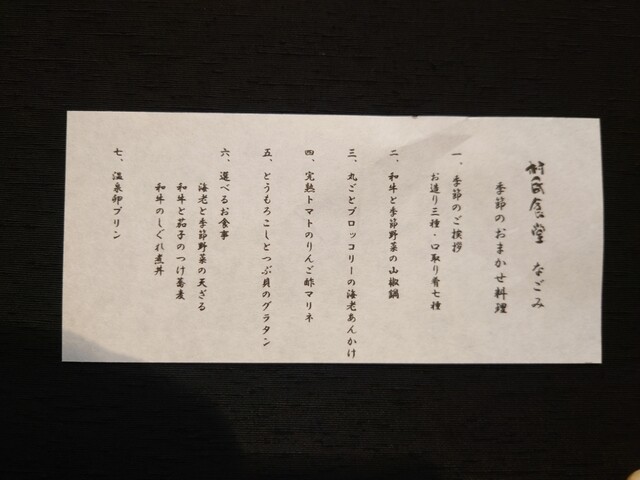 村民食堂 なごみ
季節のおまかせ料理
一、季節のご挨拶
お造り三種・口取り肴七種
二、和牛と季節野菜の山椒鍋
三、丸ごとブロッコリーの海老あんかけ
四、完熟トマトのりんご酢マリネ
五、とうもろこしとつぶ貝のグラタン
六、選べるお食事
海老と季節野菜の天ざる
和牛と茄子のつけ蕎麦
和牛のしぐれ煮丼
七、温泉卵プリン